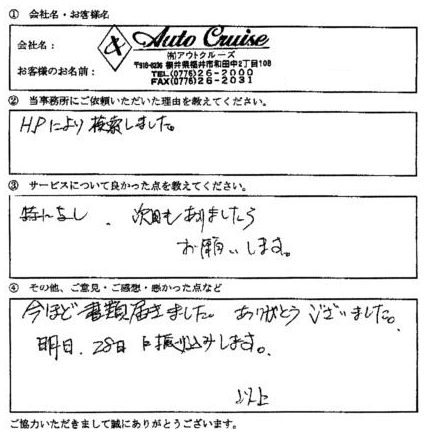 ① 会社名・お客様名
会社名:
Auto Cruise
㈲アウトクルーズ
福井県福井市和田中2丁目108
お客様のお名前:
TEL(0776)26-2000
FAX(0776)26-2031
② 当事務所にご依頼いただいた理由を教えてください。
HPにより検索しました。
③ サービスについて良かった点を教えてください。
特になし、次回もありましたら
お願いします。
④ その他、ご意見・ご感想・悪かった点など
今ほど書類届きました。ありがとうございました。
明日、28日に振り込みします。
以上
ご協力いただきまして誠にありがとうございます。